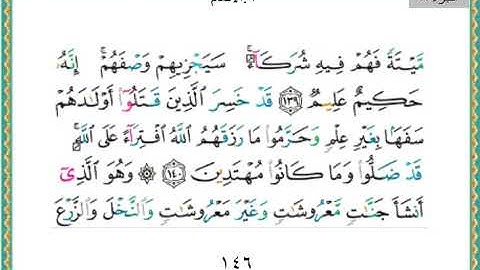 مَّيْتَةً فَهُمْ فِيهِ شُرَكَآءُ ۚ سَيَجْزِيهِمْ وَصْفَهُمْ ۚ إِنَّهُۥ
حَكِيمٌ عَلِيمٌ ١٣٩ قَدْ خَسِرَ الَّذِينَ قَتَلُوٓا۟ أَوْلَٰدَهُمْ
سَفَهًۢا بِغَيْرِ عِلْمٍ وَحَرَّمُوا۟ مَا رَزَقَهُمُ اللَّهُ افْتِرَآءً عَلَى اللَّهِ ۚ
قَدْ ضَلُّوا۟ وَمَا كَانُوا۟ مُهْتَدِينَ ١٤٠ ۞ وَهُوَ الَّذِىٓ
أَنشَأَ جَنَّٰتٍ مَّعْرُوشَٰتٍ وَغَيْرَ مَعْرُوشَٰتٍ وَالنَّخْلَ وَالزَّرْعَ
١٤٦